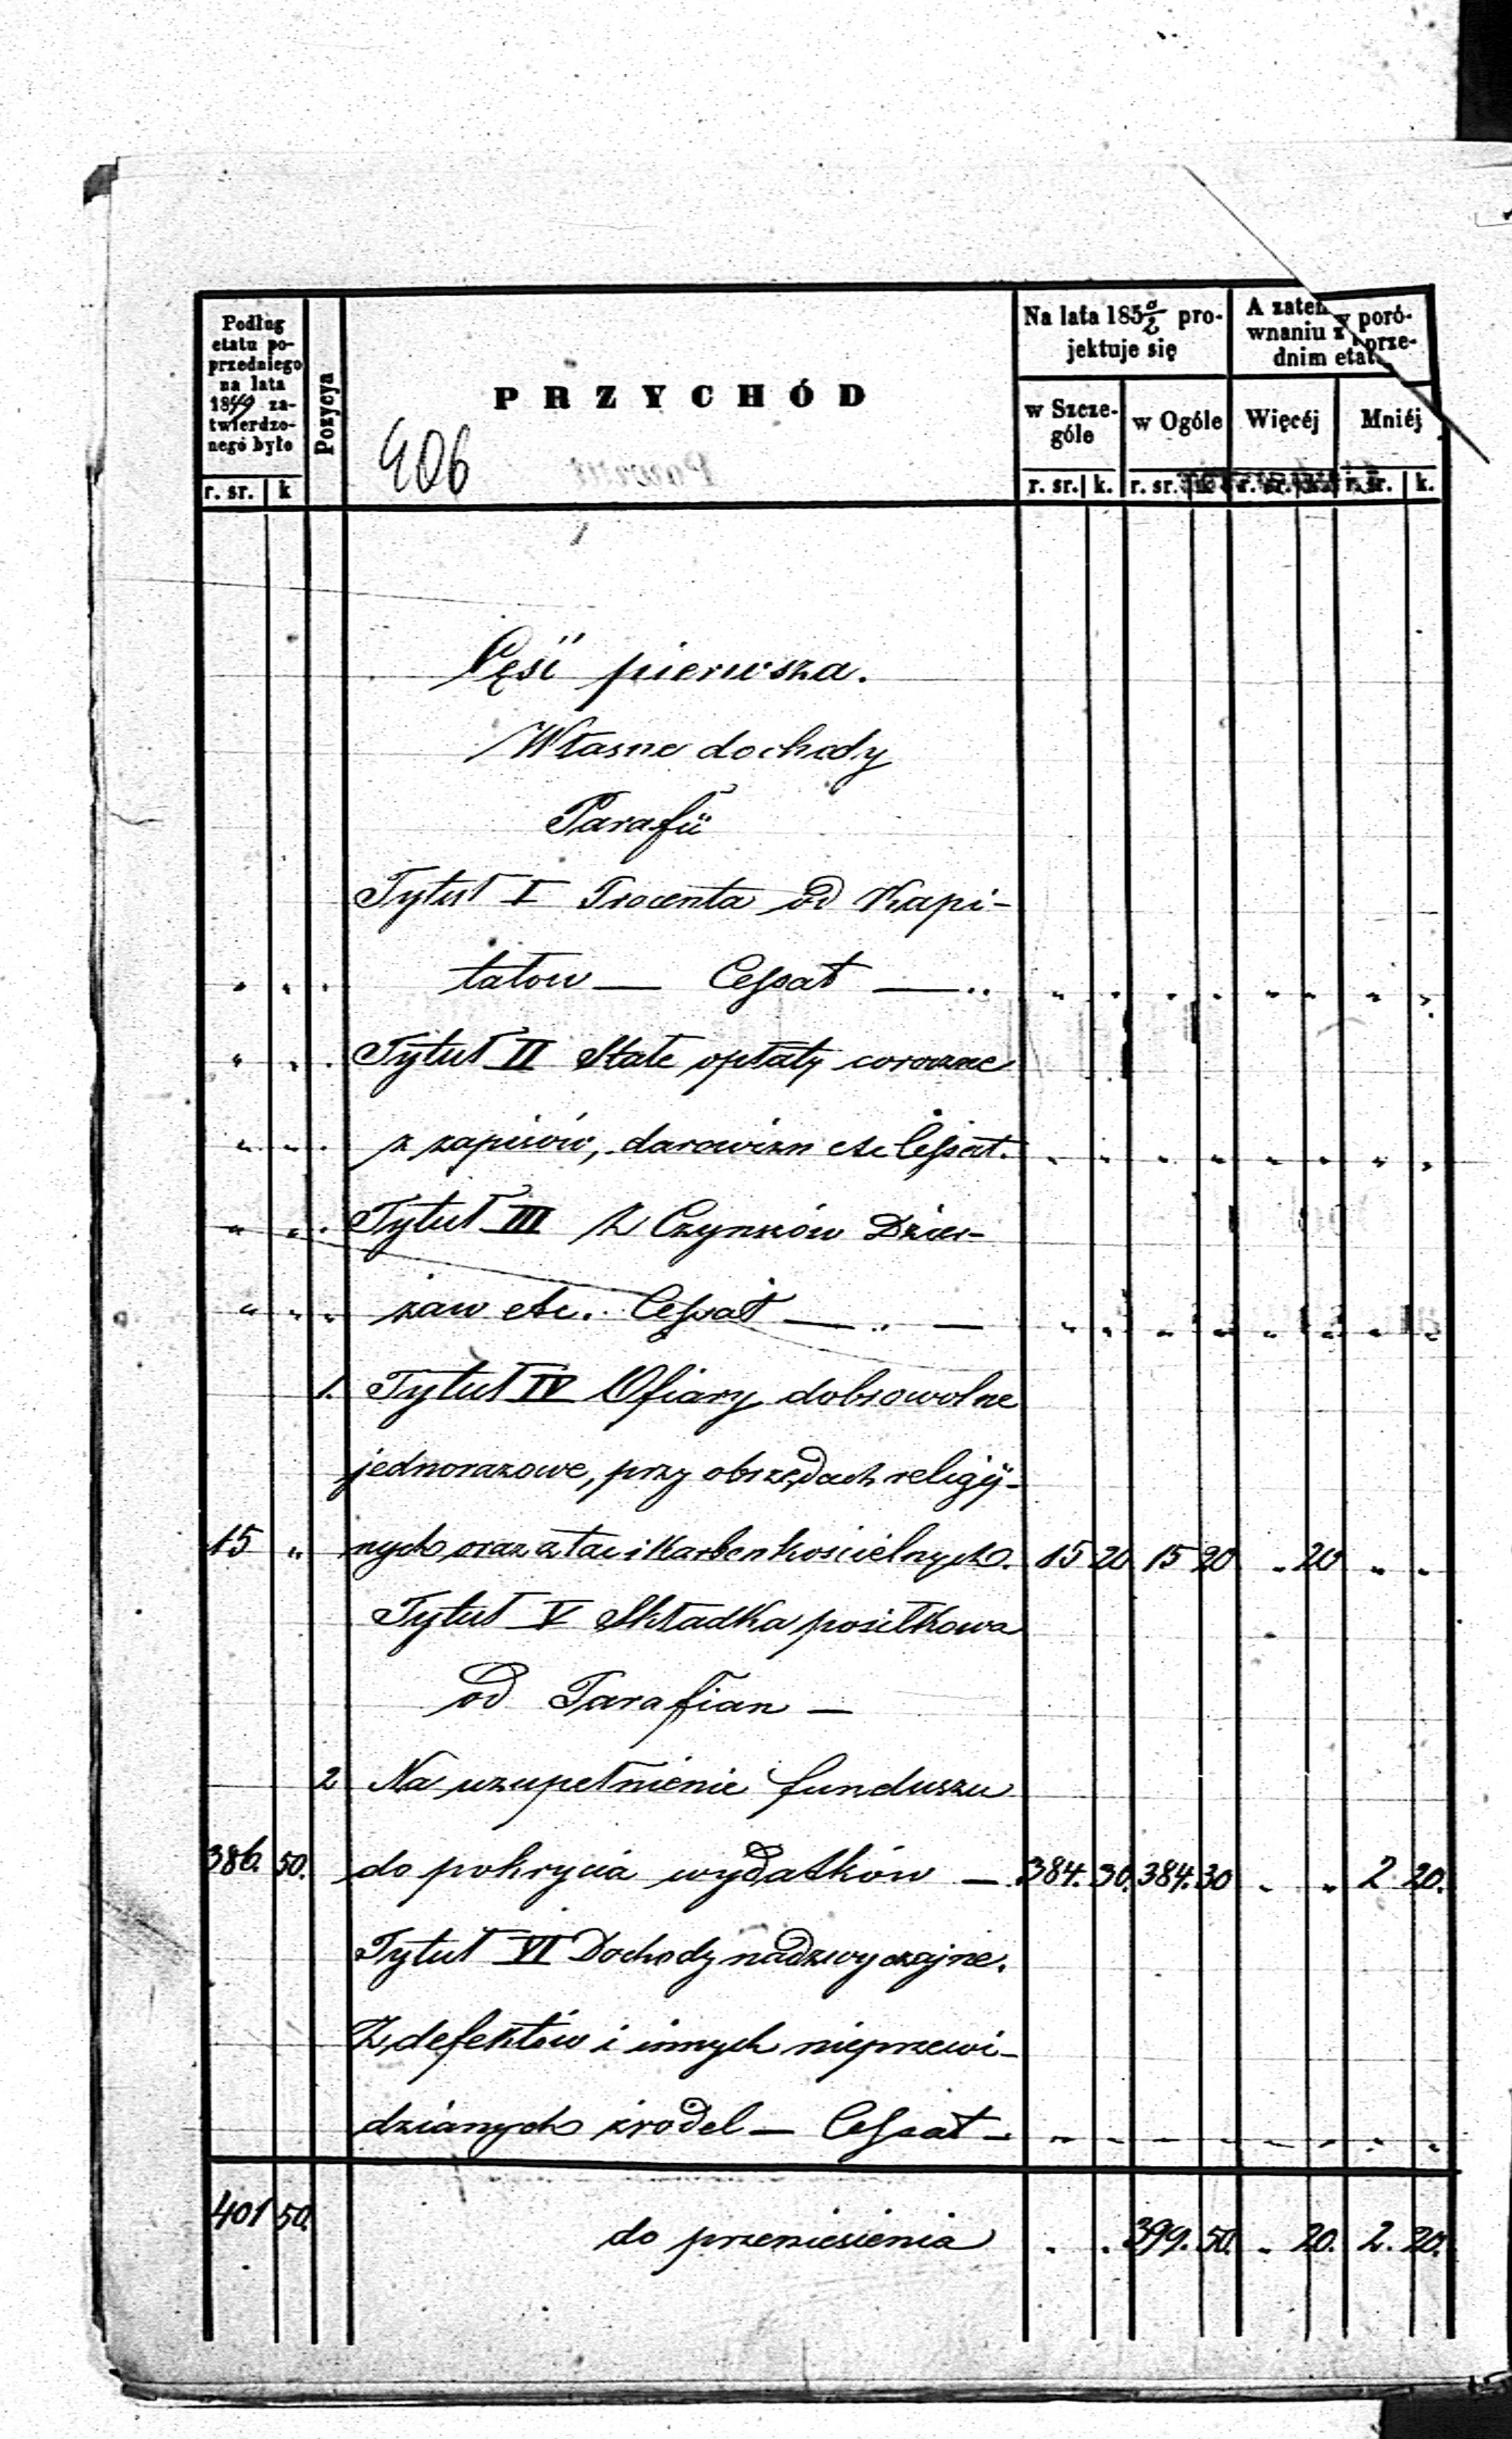 Podług
etatu po-
przedniego
na lata
1849 za-
twierdzo-
nego było
r. sr. k
Pozycya
PRZYCHÓD
406
Na lata 185 0/2 pro-
jektuje się
w Szcze-
góle
w Ogóle
r. sr. k. r. sr. k.
A zatem w poró-
wnaniu z poprze-
dnim etat
Więcéj Mniéj
r. sr. k. r. sr. k.
Część pierwsza.
Własne dochody
Parafii
Tytuł I Procenta od Kapi-
" " . tałow — Cessat — .. " " " " " " " "
" " . Tytuł II Stałe opłaty coroczne
" " . z zapisów, darowizn etc Cessat. " " " " " " " "
" " . Tytuł III Z Czynszów Dzier-
" " " żaw etc. Cessat — . — " " " " " " " "
1. Tytuł IV Ofiary dobrowolne
jednorazowe, przy obrzędach religij-
15 " nych oraz z tac i Karbon kościelnych. 15 20 15 20 " 20 " "
Tytuł V Składka posiłkowa
od Parafian —
2 Na uzupełnienie funduszu
386. 50. do pokrycia wydatków — 384. 30. 384. 30 " " 2 20.
Tytuł VI Dochody nadzwyczajne.
Z defektów i innych nieprzewi-
dzianych źrodeł — Cessat — " " " " " " " "
401 50. do przeniesienia . . 399. 50. " 20. 2. 20.